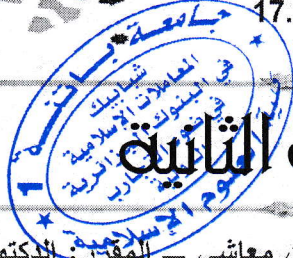 17.
جامعة باتنة 1
شبابيك
المعاملات الإسلامية
في البنوك الجزائرية
كلية العلوم الإسلامية
الثانية
معاشي – المقرر: الدكتور